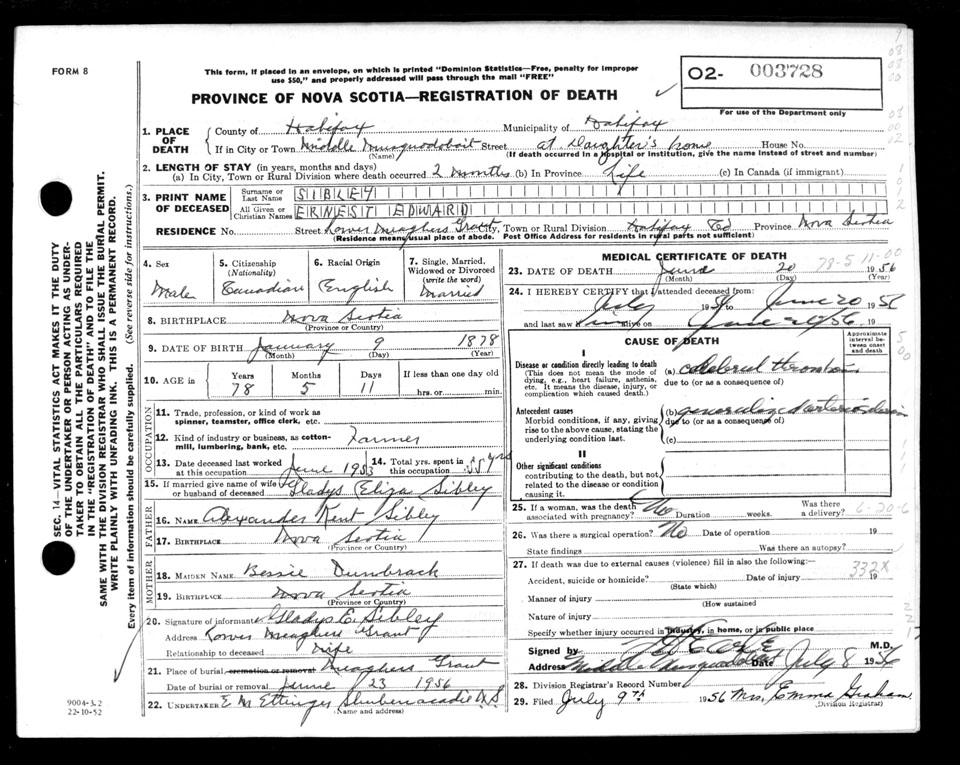 FORM 8
This form, if placed in an envelope, on which is printed "Dominion Statistics—Free, penalty for improper
use $50," and properly addressed will pass through the mail "FREE"
PROVINCE OF NOVA SCOTIA—REGISTRATION OF DEATH
O2- 003728
For use of the Department only
1. PLACE OF DEATH
County of Halifax Municipality of Halifax
If in City or Town Middle Musquodoboit Street at Daughter's home House No.
(Name) (If death occurred in a hospital or institution, give the name instead of street and number)
2. LENGTH OF STAY (in years, months and days)
(a) In City, Town or Rural Division where death occurred 2 months (b) In Province Life (c) In Canada (if immigrant)
3. PRINT NAME OF DECEASED
Surname or Last Name SIBLEY
All Given or Christian Names ERNEST EDWARD
RESIDENCE No. Street Lower Meaghers Grant City, Town or Rural Division Halifax Co Province Nova Scotia
(Residence means usual place of abode. Post Office Address for residents in rural parts not sufficient)
4. Sex Male
5. Citizenship (Nationality) Canadian
6. Racial Origin English
7. Single, Married, Widowed or Divorced (write the word) Married
8. BIRTHPLACE Nova Scotia
(Province or Country)
9. DATE OF BIRTH January 9 1878
(Month) (Day) (Year)
10. AGE in Years 78 Months 5 Days 11 If less than one day old
hrs. or min.
OCCUPATION
11. Trade, profession, or kind of work as
spinner, teamster, office clerk, etc.
12. Kind of industry or business, as cotton-
mill, lumbering, bank, etc. Farmer
13. Date deceased last worked at this occupation June 1953
14. Total yrs. spent in this occupation 55 yrs
15. If married give name of wife or husband of deceased Gladys Eliza Sibley
FATHER
16. NAME Alexander Kent Sibley
17. BIRTHPLACE Nova Scotia
(Province or Country)
MOTHER
18. MAIDEN NAME Bessie Dunbrack
19. BIRTHPLACE Nova Scotia
(Province or Country)
20. Signature of informant Gladys E. Sibley
Address Lower Meaghers Grant
Relationship to deceased wife
21. Place of burial, cremation or removal Meaghers Grant
Date of burial or removal June 23 1956
22. UNDERTAKER E M Ettinger Shubenacadie N.S.
(Name and address)
MEDICAL CERTIFICATE OF DEATH
78-5 11-00
23. DATE OF DEATH June 20 1956
(Month) (Day) (Year)
24. I HEREBY CERTIFY that I attended deceased from:
19 to June 20 1956
and last saw him alive on June 20/56 19
CAUSE OF DEATH
Approximate interval between onset and death
I
Disease or condition directly leading to death
(This does not mean the mode of
dying, e.g., heart failure, asthenia,
etc. It means the disease, injury, or
complication which caused death.)
(a) cerebral thrombosis
due to (or as a consequence of)
Antecedent causes
Morbid conditions, if any, giving
rise to the above cause, stating the
underlying condition last.
(b) generalized arteriosclerosis
due to (or as a consequence of)
(c)
II
Other significant conditions
contributing to the death, but not
related to the disease or condition
causing it.
25. If a woman, was the death associated with pregnancy? No Duration weeks. Was there a delivery? 6-20-6
26. Was there a surgical operation? No Date of operation 19
State findings Was there an autopsy?
27. If death was due to external causes (violence) fill in also the following:
332X
Accident, suicide or homicide? Date of injury 19
(State which)
Manner of injury
(How sustained
Nature of injury
Specify whether injury occurred in industry, in home, or in public place
Signed by M.D.
Address Middle Musquodoboit Date July 8 1956
28. Division Registrar's Record Number
29. Filed July 9th 1956 Mrs. Emma Graham
(Division Registrar)
SEC. 14—VITAL STATISTICS ACT MAKES IT THE DUTY
OF THE UNDERTAKER OR PERSON ACTING AS UNDER-
TAKER TO OBTAIN ALL THE PARTICULARS REQUIRED
IN THE "REGISTRATION OF DEATH" AND TO FILE THE
SAME WITH THE DIVISION REGISTRAR WHO SHALL ISSUE THE BURIAL PERMIT.
WRITE PLAINLY WITH UNFADING INK. THIS IS A PERMANENT RECORD.
Every item of information should be carefully supplied. (See reverse side for instructions.)
9004-3.2
22-10-52